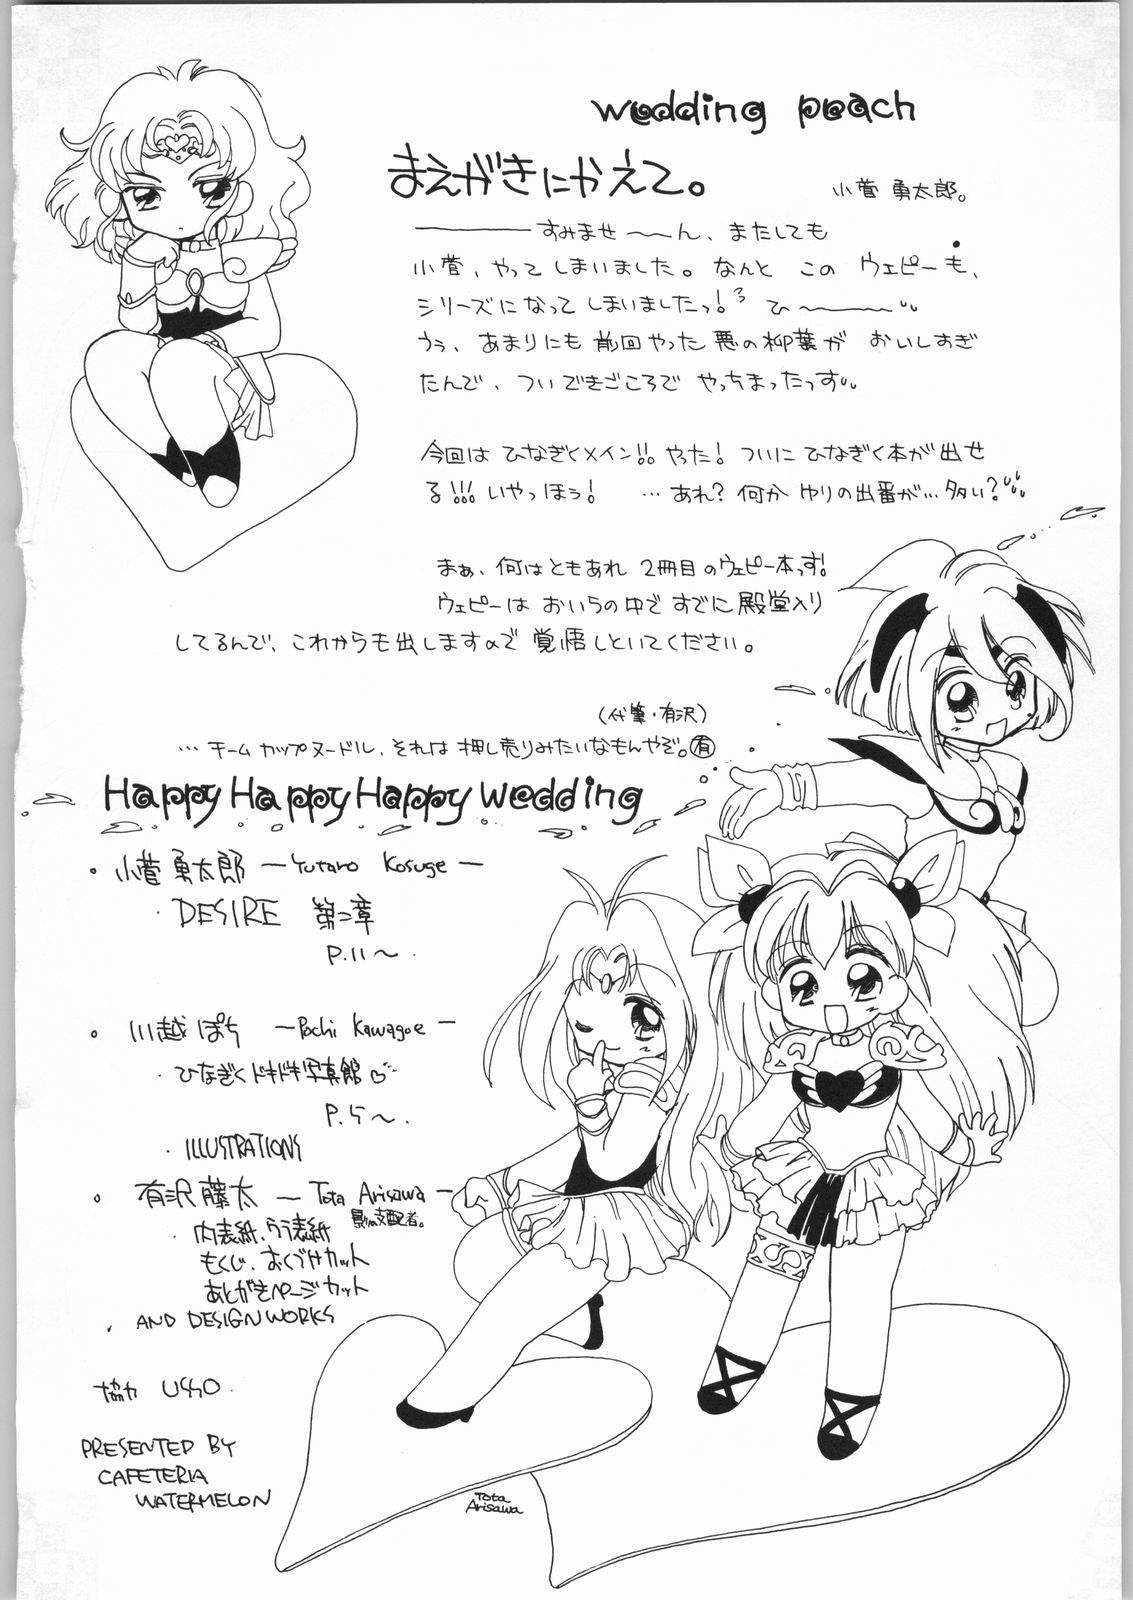 wedding peach
まえがきにかえて。
小菅 勇太郎。
————すみませ〜〜ん、またしても
小菅、やってしまいました。なんと このウェピーも、
シリーズになってしまいましたっ！ひ————
うぅ、あまりにも前回やった悪の柳葉が おいしすぎ
たんで、ついできごころで やっちまったっす
今回は ひなぎくメイン!! やった！ついにひなぎく本が出せ
る!!! いやっほう！ …あれ？何か ゆりの出番が…多い？
まぁ、何はともあれ 2冊目のウェピー本っす！
ウェピーは おいらの中で すでに殿堂入り
してるんで、これからも出しますので 覚悟しといてください。
（代筆・有沢）
…チームカップヌードル、それは押し売りみたいなもんやぞ。㊒
Happy Happy Happy wedding
・小菅 勇太郎 —Yutaro Kosuge—
・DESIRE 第二章
P.11〜.
・川越 ぽち —Pochi Kawagoe—
・ひなぎくドキドキ写真館♡
P.5〜.
・ILLUSTRATIONS
・有沢 藤太 —Tota Arisawa—
影の支配者。
・内表紙、ウラ表紙
もくじ、おくづけカット
あとがきページカット
・AND DESIGN WORKS
協力 USO.
PRESENTED BY
CAFETERIA
WATERMELON
Tota
Arisawa